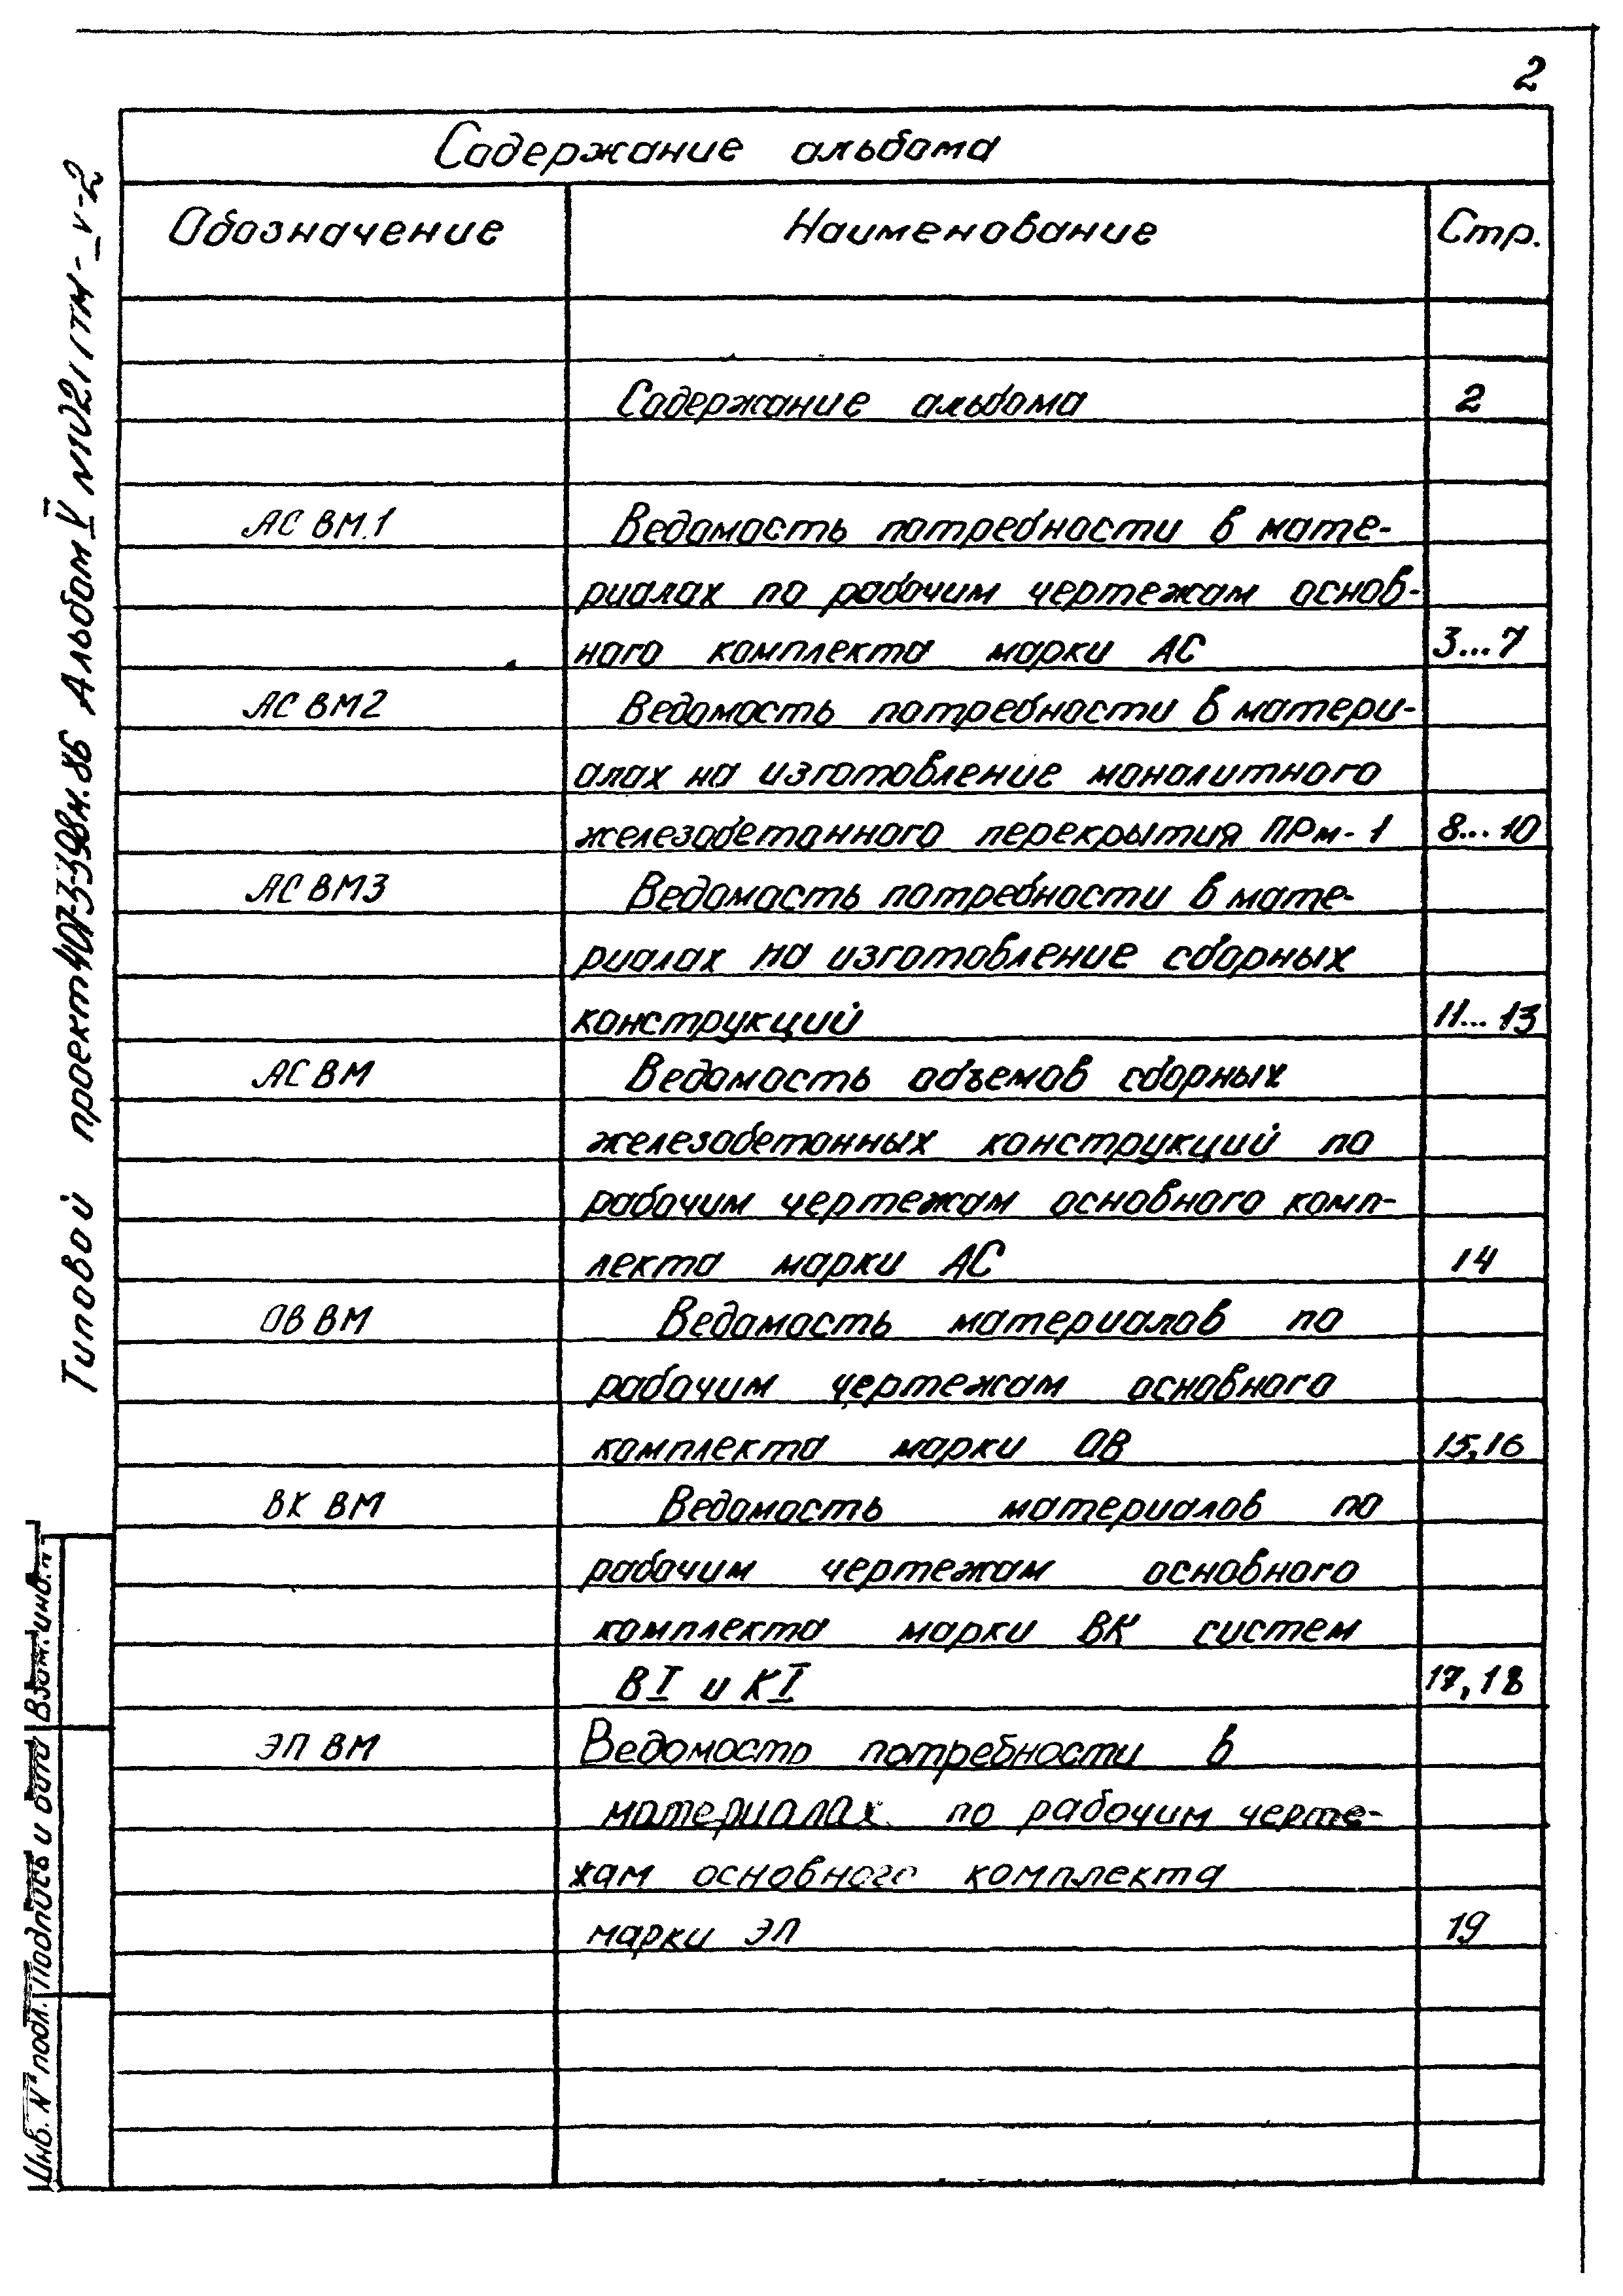 2
Содержание альбома
Обозначение Наименование Стр.
Содержание альбома 2
АС ВМ.1 Ведомость потребности в мате-
риалах по рабочим чертежам основ-
ного комплекта марки АС 3...7
АС ВМ2 Ведомость потребности в матери-
алах на изготовление монолитного
железобетонного перекрытия ПРм-1 8...10
АС ВМ3 Ведомость потребности в мате-
риалах на изготовление сборных
конструкций 11...13
АС ВМ Ведомость объемов сборных
железобетонных конструкций по
рабочим чертежам основного комп-
лекта марки АС 14
ОВ ВМ Ведомость материалов по
рабочим чертежам основного
комплекта марки ОВ 15,16
ВК ВМ Ведомость материалов по
рабочим чертежам основного
комплекта марки ВК систем
ВI и КI 17,18
ЭП ВМ Ведомость потребности в
материалах по рабочим черте-
жам основного комплекта
марки ЭП 19
Типовой проект 407-3-398м.86 Альбом V
Взам. инв. №
Подпись и дата
Инв. № подл.